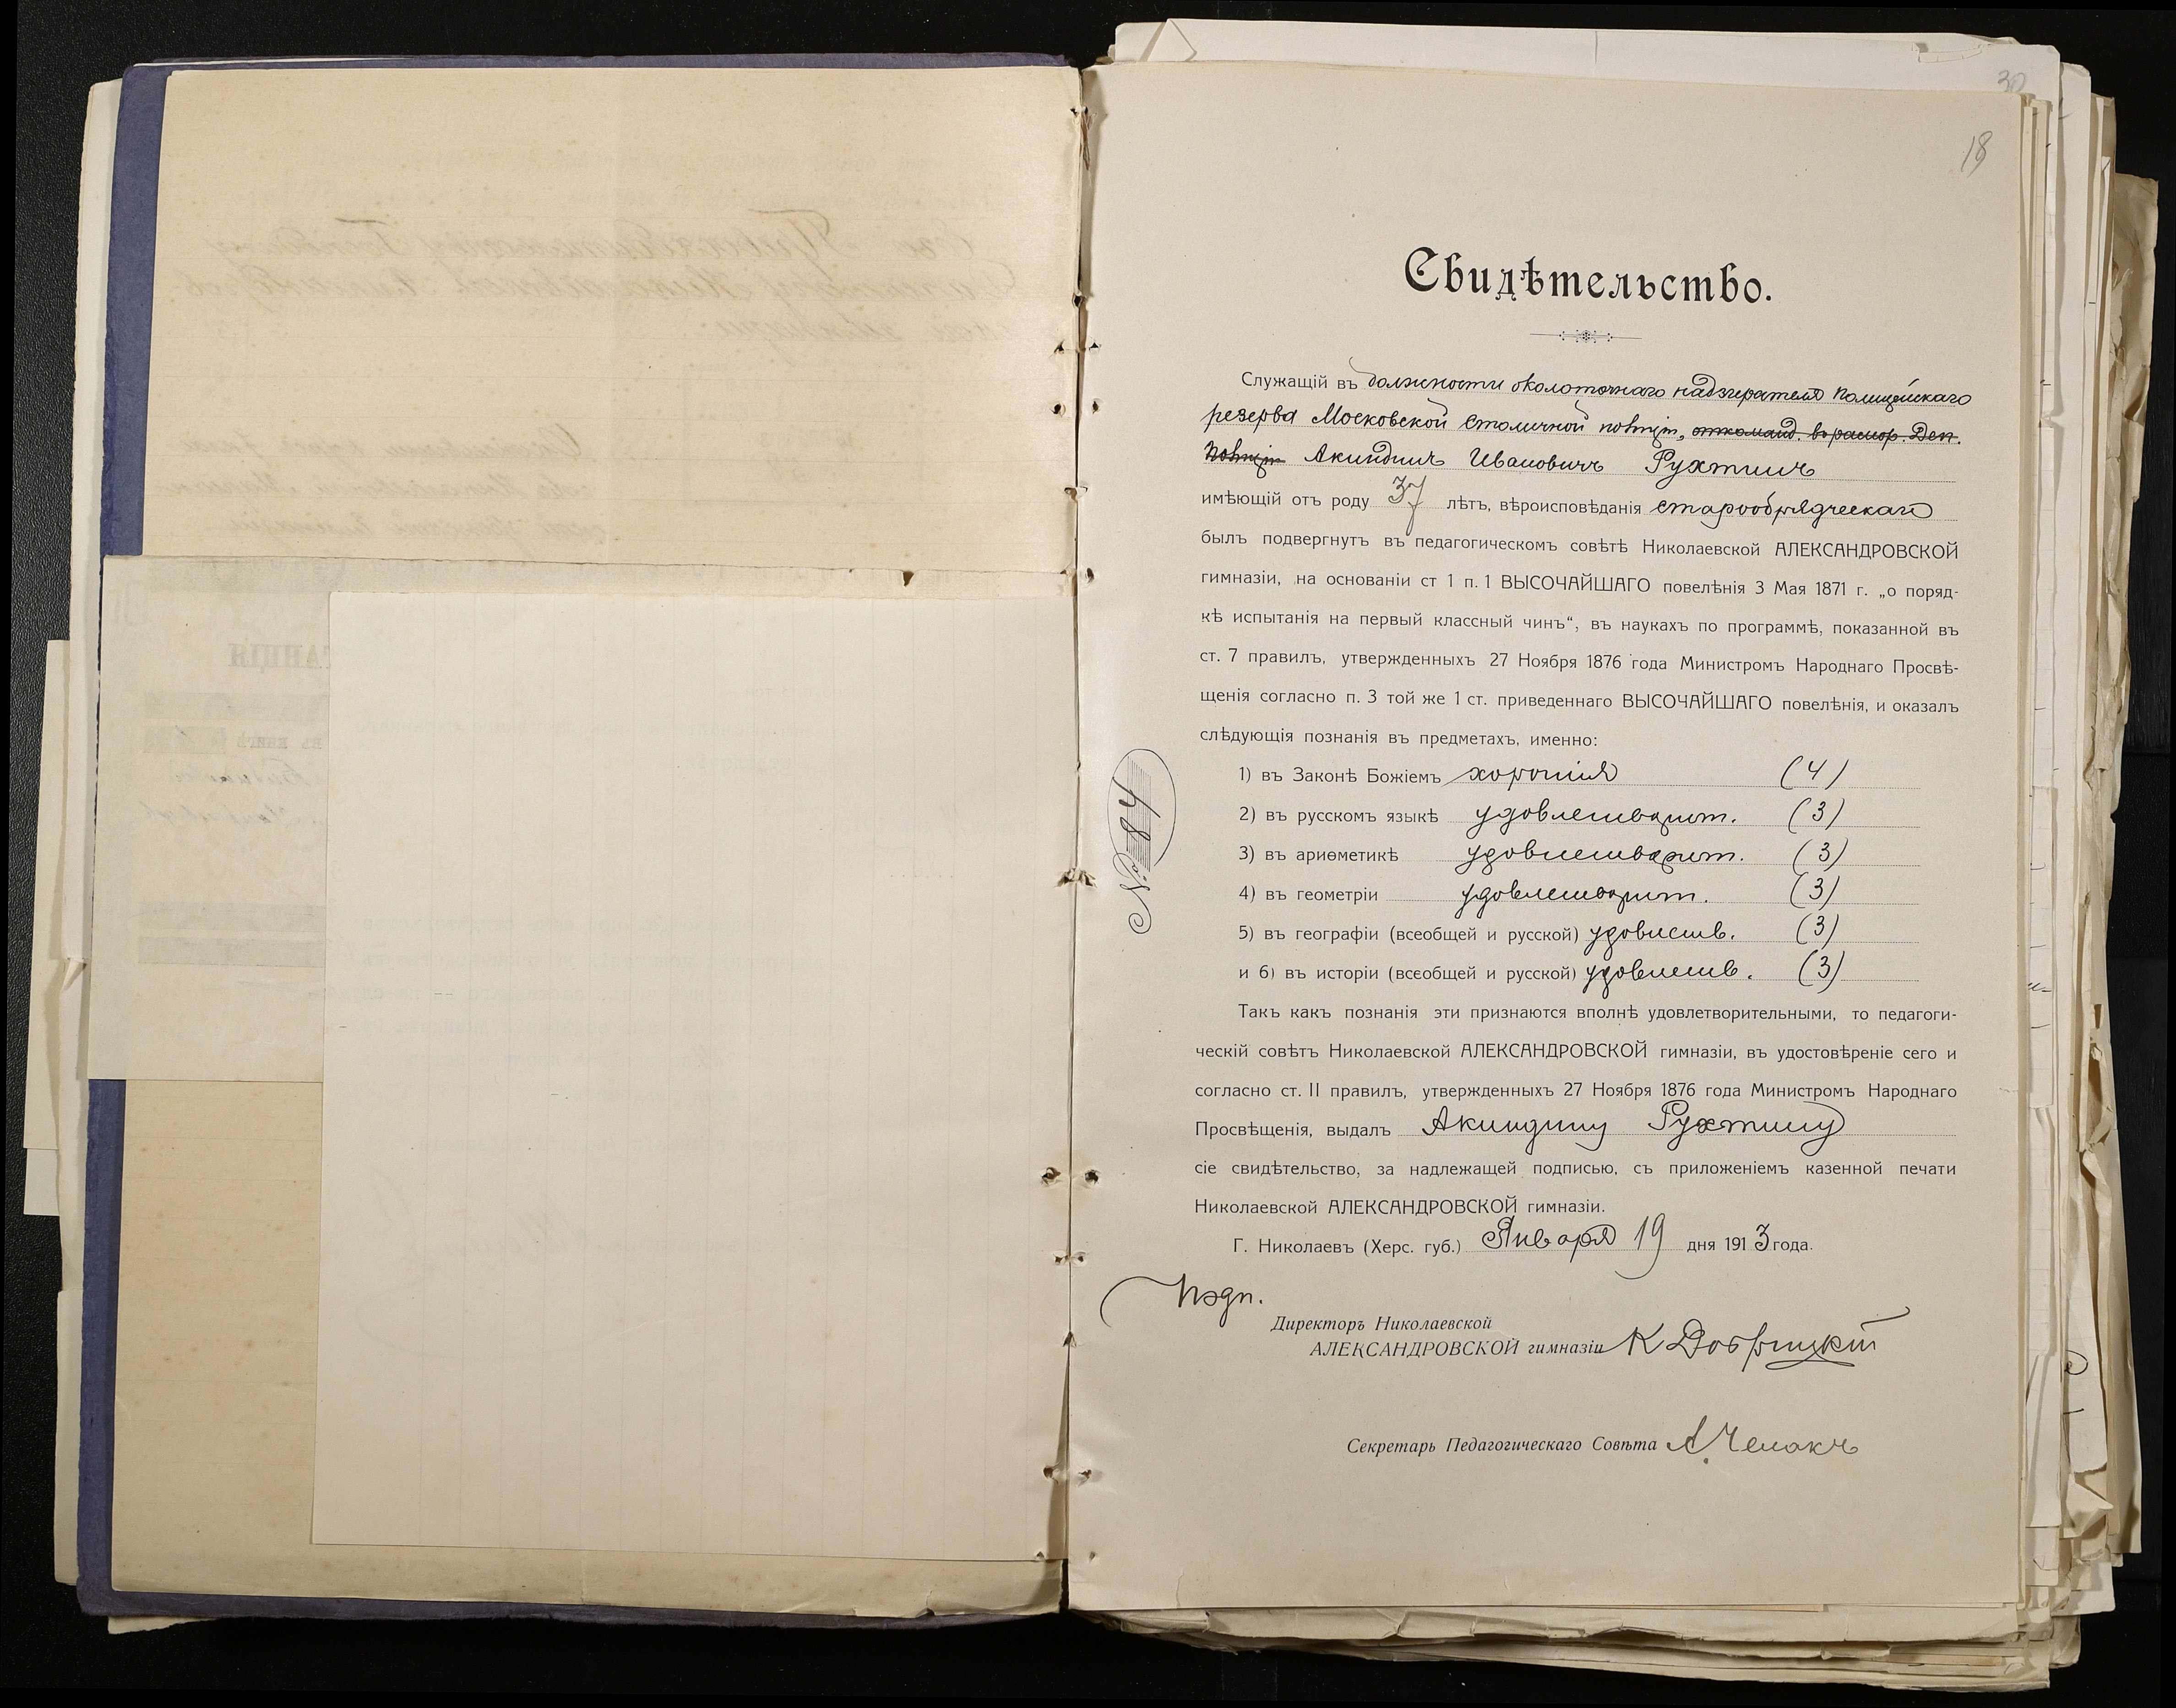 30
18
Свидѣтельство.
Служащій въ должности околоточнаго надзирателя полицейскаго
резерва Московской столичной поліціи, откоманд. въ распор. Деп.
поліціи Акиндинъ Ивановичъ Рухтинъ
имѣющій отъ роду 37 лѣтъ, вѣроисповѣданія старообрядческаго
былъ подвергнутъ въ педагогическомъ совѣтѣ Николаевской АЛЕКСАНДРОВСКОЙ
гимназіи, на основаніи ст 1 п. 1 ВЫСОЧАЙШАГО повелѣнія 3 Мая 1871 г. „о поряд-
кѣ испытанія на первый классный чинъ“, въ наукахъ по программѣ, показанной въ
ст. 7 правилъ, утвержденныхъ 27 Ноября 1876 года Министромъ Народнаго Просвѣ-
щенія согласно п. 3 той же 1 ст. приведеннаго ВЫСОЧАЙШАГО повелѣнія, и оказалъ
слѣдующія познанія въ предметахъ, именно:
1) въ Законѣ Божіемъ хорошія (4)
2) въ русскомъ языкѣ удовлетворит. (3)
3) въ ариѳметикѣ удовлетворит. (3)
4) въ геометріи удовлетворит. (3)
5) въ географіи (всеобщей и русской) удовлетв. (3)
и 6) въ исторіи (всеобщей и русской) удовлетв. (3)
№ 84
Такъ какъ познанія эти признаются вполнѣ удовлетворительными, то педагоги-
ческій совѣтъ Николаевской АЛЕКСАНДРОВСКОЙ гимназіи, въ удостовѣреніе сего и
согласно ст. II правилъ, утвержденныхъ 27 Ноября 1876 года Министромъ Народнаго
Просвѣщенія, выдалъ Акиндину Рухтину
сіе свидѣтельство, за надлежащей подписью, съ приложеніемъ казенной печати
Николаевской АЛЕКСАНДРОВСКОЙ гимназіи.
Г. Николаевъ (Херс. губ.) Января 19 дня 1913 года.
Подп.
Директоръ Николаевской
АЛЕКСАНДРОВСКОЙ гимназіи К Добрицкій
Секретарь Педагогическаго Совѣта А. Челакъ